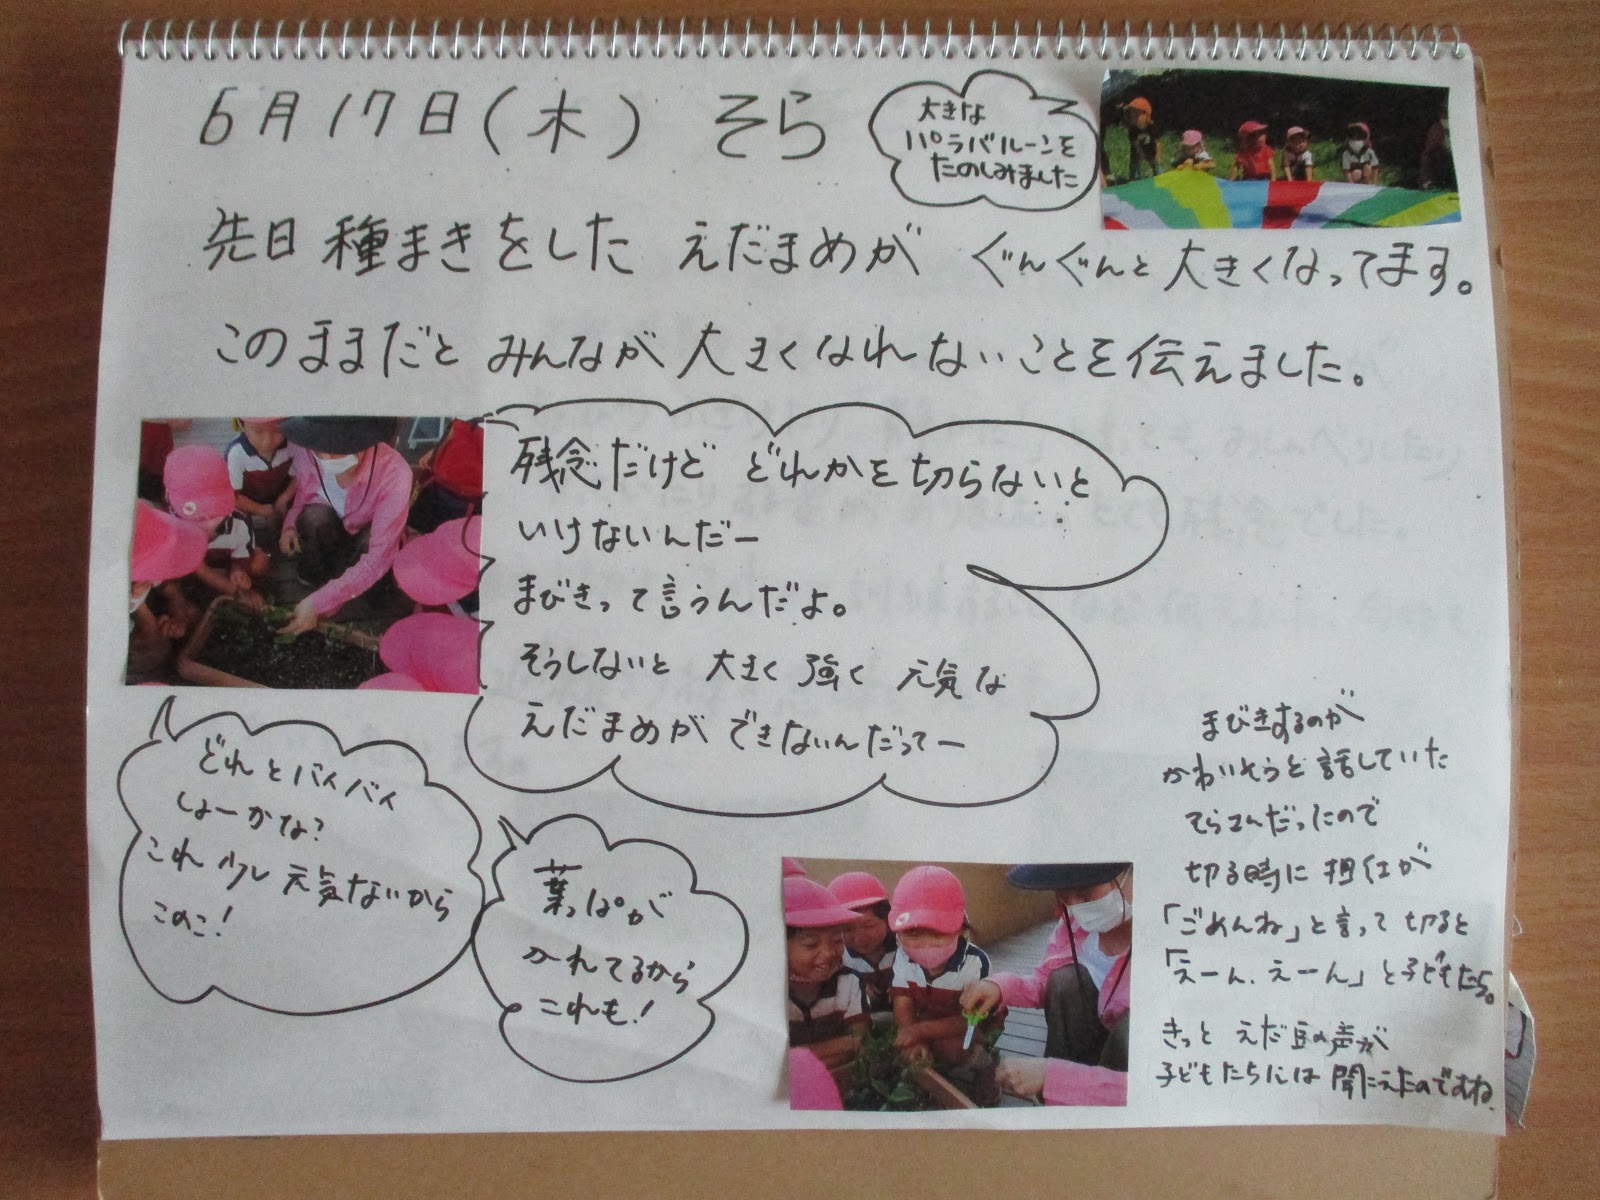 6月17日(木) そら
大きな
パラバルーンを
たのしみました
先日種まきをした えだまめが ぐんぐんと大きくなってます。
このままだと みんなが大きくなれないことを伝えました。
残念だけど どれかを切らないと
いけないんだー
まびきって言うんだよ。
そうしないと 大きく強く 元気な
えだまめができないんだってー
どれとバイバイ
しよーかな?
これ少し元気ないから
このこ!
葉っぱが
かれてるから
これも!
まびきするのが
かわいそうと話していた
そらさんだったので
切る時に担任が
「ごめんね」と言って切ると
「えーん、えーん」と子どもたち。
きっと えだ豆の声が
子どもたちには聞こえたのですね。